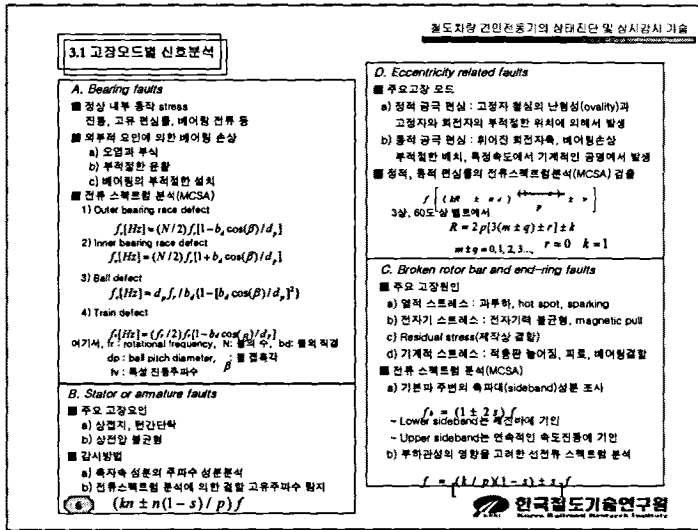 철도차량 견인전동기의 상태진단 및 상시감시 기술
3.1 고장모드별 신호분석
A. Bearing faults
■ 정상 내부 동작 stress
진동, 고유 편심률, 베어링 전류 등
■ 외부적 요인에 의한 베어링 손상
a) 오염과 부식
b) 부적절한 윤활
c) 베어링의 부적절한 설치
■ 전류 스펙트럼 분석(MCSA)
1) Outer bearing race defect
f_v[Hz]=(N/2)f_r[1-b_d cos(β)/d_p]
2) Inner bearing race defect
f_v[Hz]=(N/2)f_r[1+b_d cos(β)/d_p]
3) Ball defect
f_v[Hz]=d_p f_r/b_d{1-[b_d cos(β)/d_p]²}
4) Train defect
f_v[Hz]=(f_r/2)f_r[1-b_d cos(β)/d_p]
여기서, fr : rotational frequency, N: 볼의 수, bd: 볼의 직경
dp : ball pitch diameter, β : 볼 접촉각
fv : 특성 진동주파수
B. Stator or armature faults
■ 주요 고장요인
a) 상접지, 턴간단락
b) 상전압 불균형
■ 감시방법
a) 축자속 성분의 주파수 성분분석
b) 전류스펙트럼 분석에 의한 결함 고유주파수 탐지
(kn ± n(1-s)/p)f
6
D. Eccentricity related faults
■ 주요고장 모드
a) 정적 공극 편심 : 고정자 철심의 난형성(ovality)과
고정자와 회전자의 부적절한 위치에 의해서 발생
b) 동적 공극 편심 : 휘어진 회전자축, 베어링손상
부적절한 배치, 특정속도에서 기계적인 공명에서 발생
■ 정적, 동적 편심률의 전류스펙트럼분석(MCSA) 검출
3상, 60도 상 벨트에서
R = 2p[3(m ± q) ± r] ± k
m ± q = 0,1,2,3..., r = 0 k = 1
C. Broken rotor bar and end-ring faults
■ 주요 고장원인
a) 열적 스트레스 : 과부하, hot spot, sparking
b) 전자기 스트레스 : 전자기력 불균형, magnetic pull
c) Residual stress(제작상 결함)
d) 기계적 스트레스 : 적층판 늘어짐, 피로, 베어링결함
■ 전류 스펙트럼 분석(MCSA)
a) 기본파 주변의 측파대(sideband)성분 조사
f_b = (1 ± 2s)f
~ Lower sideband는 에 기인
~ Upper sideband는 연속적인 속도진동에 기인
b) 부하관성의 영향을 고려한 선전류 스펙트럼 분석
f = [(k/p)(1-s) ± s]f
한국철도기술연구원
Korea Railroad Research Institute